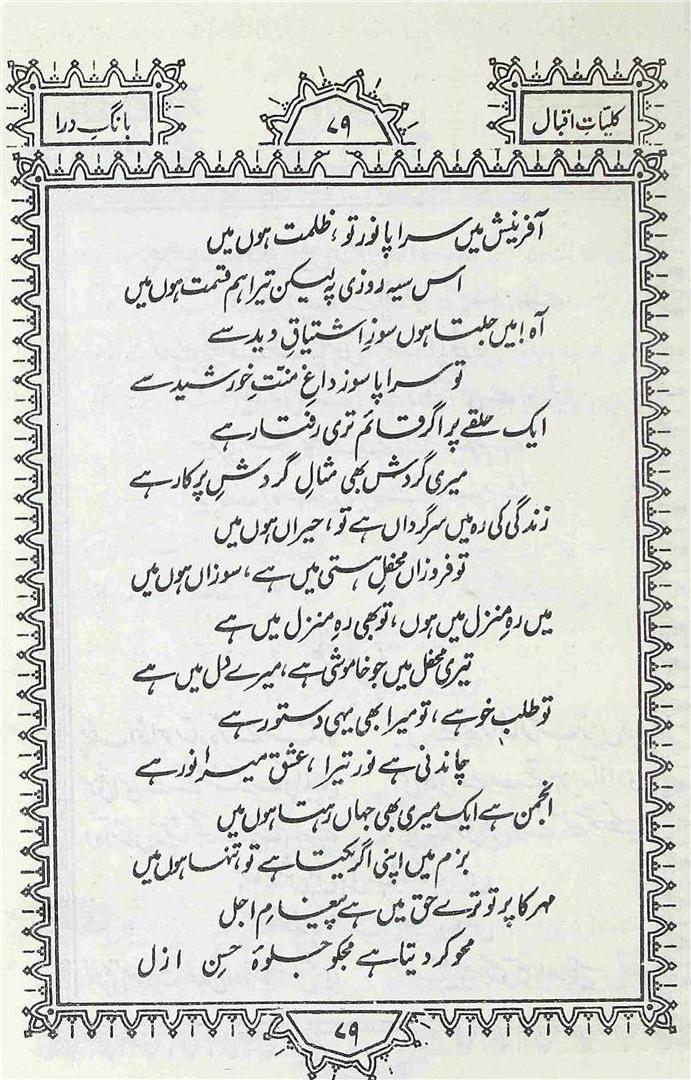 کلیّاتِ اقبال
۷۹
بانگِ درا
آفرینش میں سراپا نور تو، ظلمت ہوں میں
اس سیہ روزی پہ لیکن تیرا ہم قسمت ہوں میں
آہ! میں جلتا ہوں سوزِ اشتیاقِ دید سے
تو سراپا سوز داغِ منّتِ خورشید سے
ایک حلقے پر اگر قائم تری رفتار ہے
میری گردش بھی مثالِ گردشِ پرکار ہے
زندگی کی رہ میں سرگرداں ہے تو، حیراں ہوں میں
تو فروزاں محفلِ ہستی میں ہے، سوزاں ہوں میں
میں رہِ منزل میں ہوں، تو بھی رہِ منزل میں ہے
تیری محفل میں جو خاموشی ہے، میرے دل میں ہے
تو طلب خو ہے، تو میرا بھی یہی دستور ہے
چاندنی ہے نور تیرا، عشق میرا نور ہے
انجمن ہے ایک میری بھی جہاں رہتا ہوں میں
بزم میں اپنی اگر یکتا ہے تو، تنہا ہوں میں
مہر کا پرتو ترے حق میں ہے پیغامِ اجل
محو کر دیتا ہے مجکو جلوۂ حسنِ ازل
۷۹